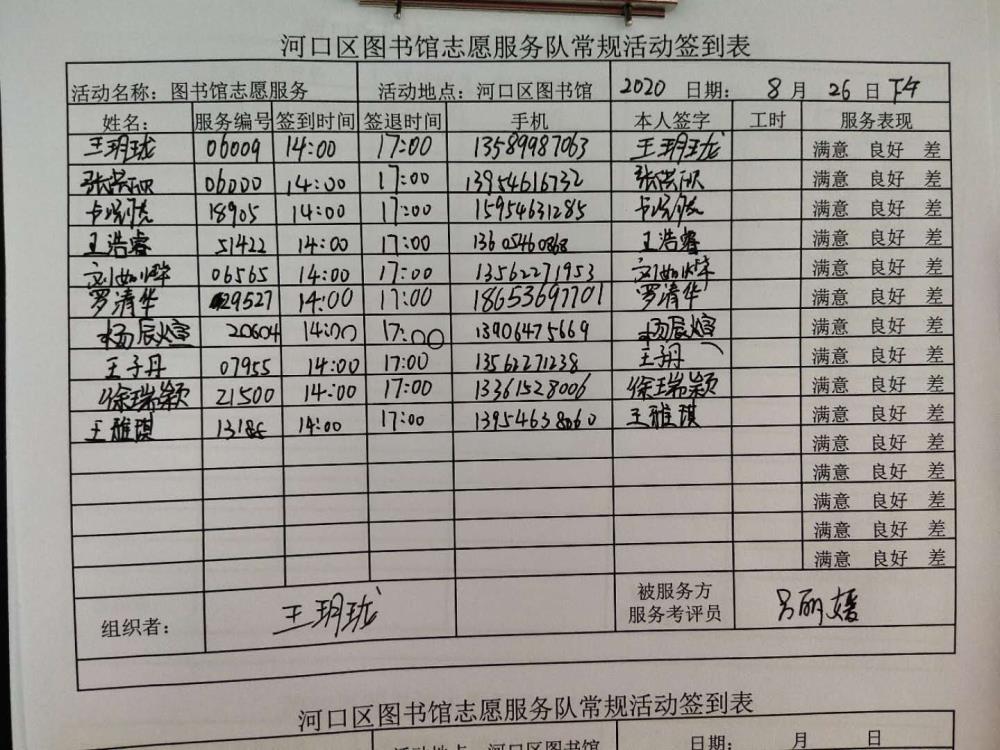 河口区图书馆志愿服务队常规活动签到表
活动名称：图书馆志愿服务 活动地点：河口区图书馆 2020 日期： 8 月 26 日 下午
姓名： 服务编号 签到时间 签退时间 手机 本人签字 工时 服务表现
王玥珑 06009 14:00 17:00 13589987063 王玥珑 满意 良好 差
06000 14:00 17:00 13954616732 满意 良好 差
18905 14:00 17:00 15954631285 满意 良好 差
王浩睿 51422 14:00 17:00 13605460868 王浩睿 满意 良好 差
刘如烨 06565 14:00 17:00 13562271953 刘如烨 满意 良好 差
罗清华 29527 14:00 17:00 18653697701 罗清华 满意 良好 差
杨辰煊 20604 14:00 17:00 13906475669 杨辰煊 满意 良好 差
王子丹 07955 14:00 17:00 13562271238 王子丹 满意 良好 差
徐瑞颖 21500 14:00 17:00 13361528006 徐瑞颖 满意 良好 差
王雅琪 14:00 17:00 王雅琪 满意 良好 差
满意 良好 差
满意 良好 差
满意 良好 差
满意 良好 差
满意 良好 差
组织者： 王玥珑 被服务方
服务考评员 吕丽媛
河口区图书馆志愿服务队常规活动签到表
活动地点：河口区图书馆 日期： 月 日